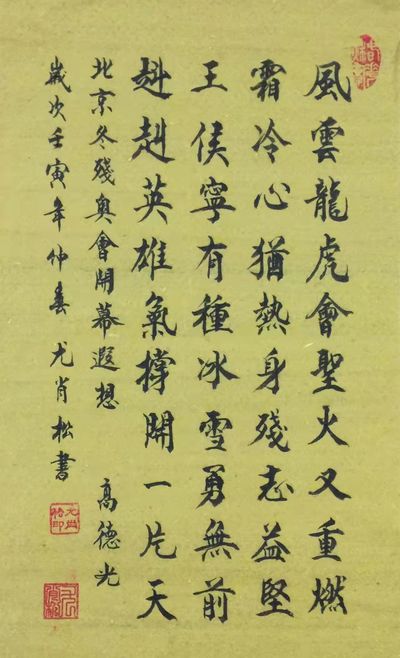 風雲龍虎會聖火又重燃
霜冷心猶熱身殘志益堅
王侯寧有種冰雪勇無前
赳赳英雄氣撐開一片天
北京冬殘奧會開幕遐想 高德光
歲次壬寅年仲春 尤肖松書